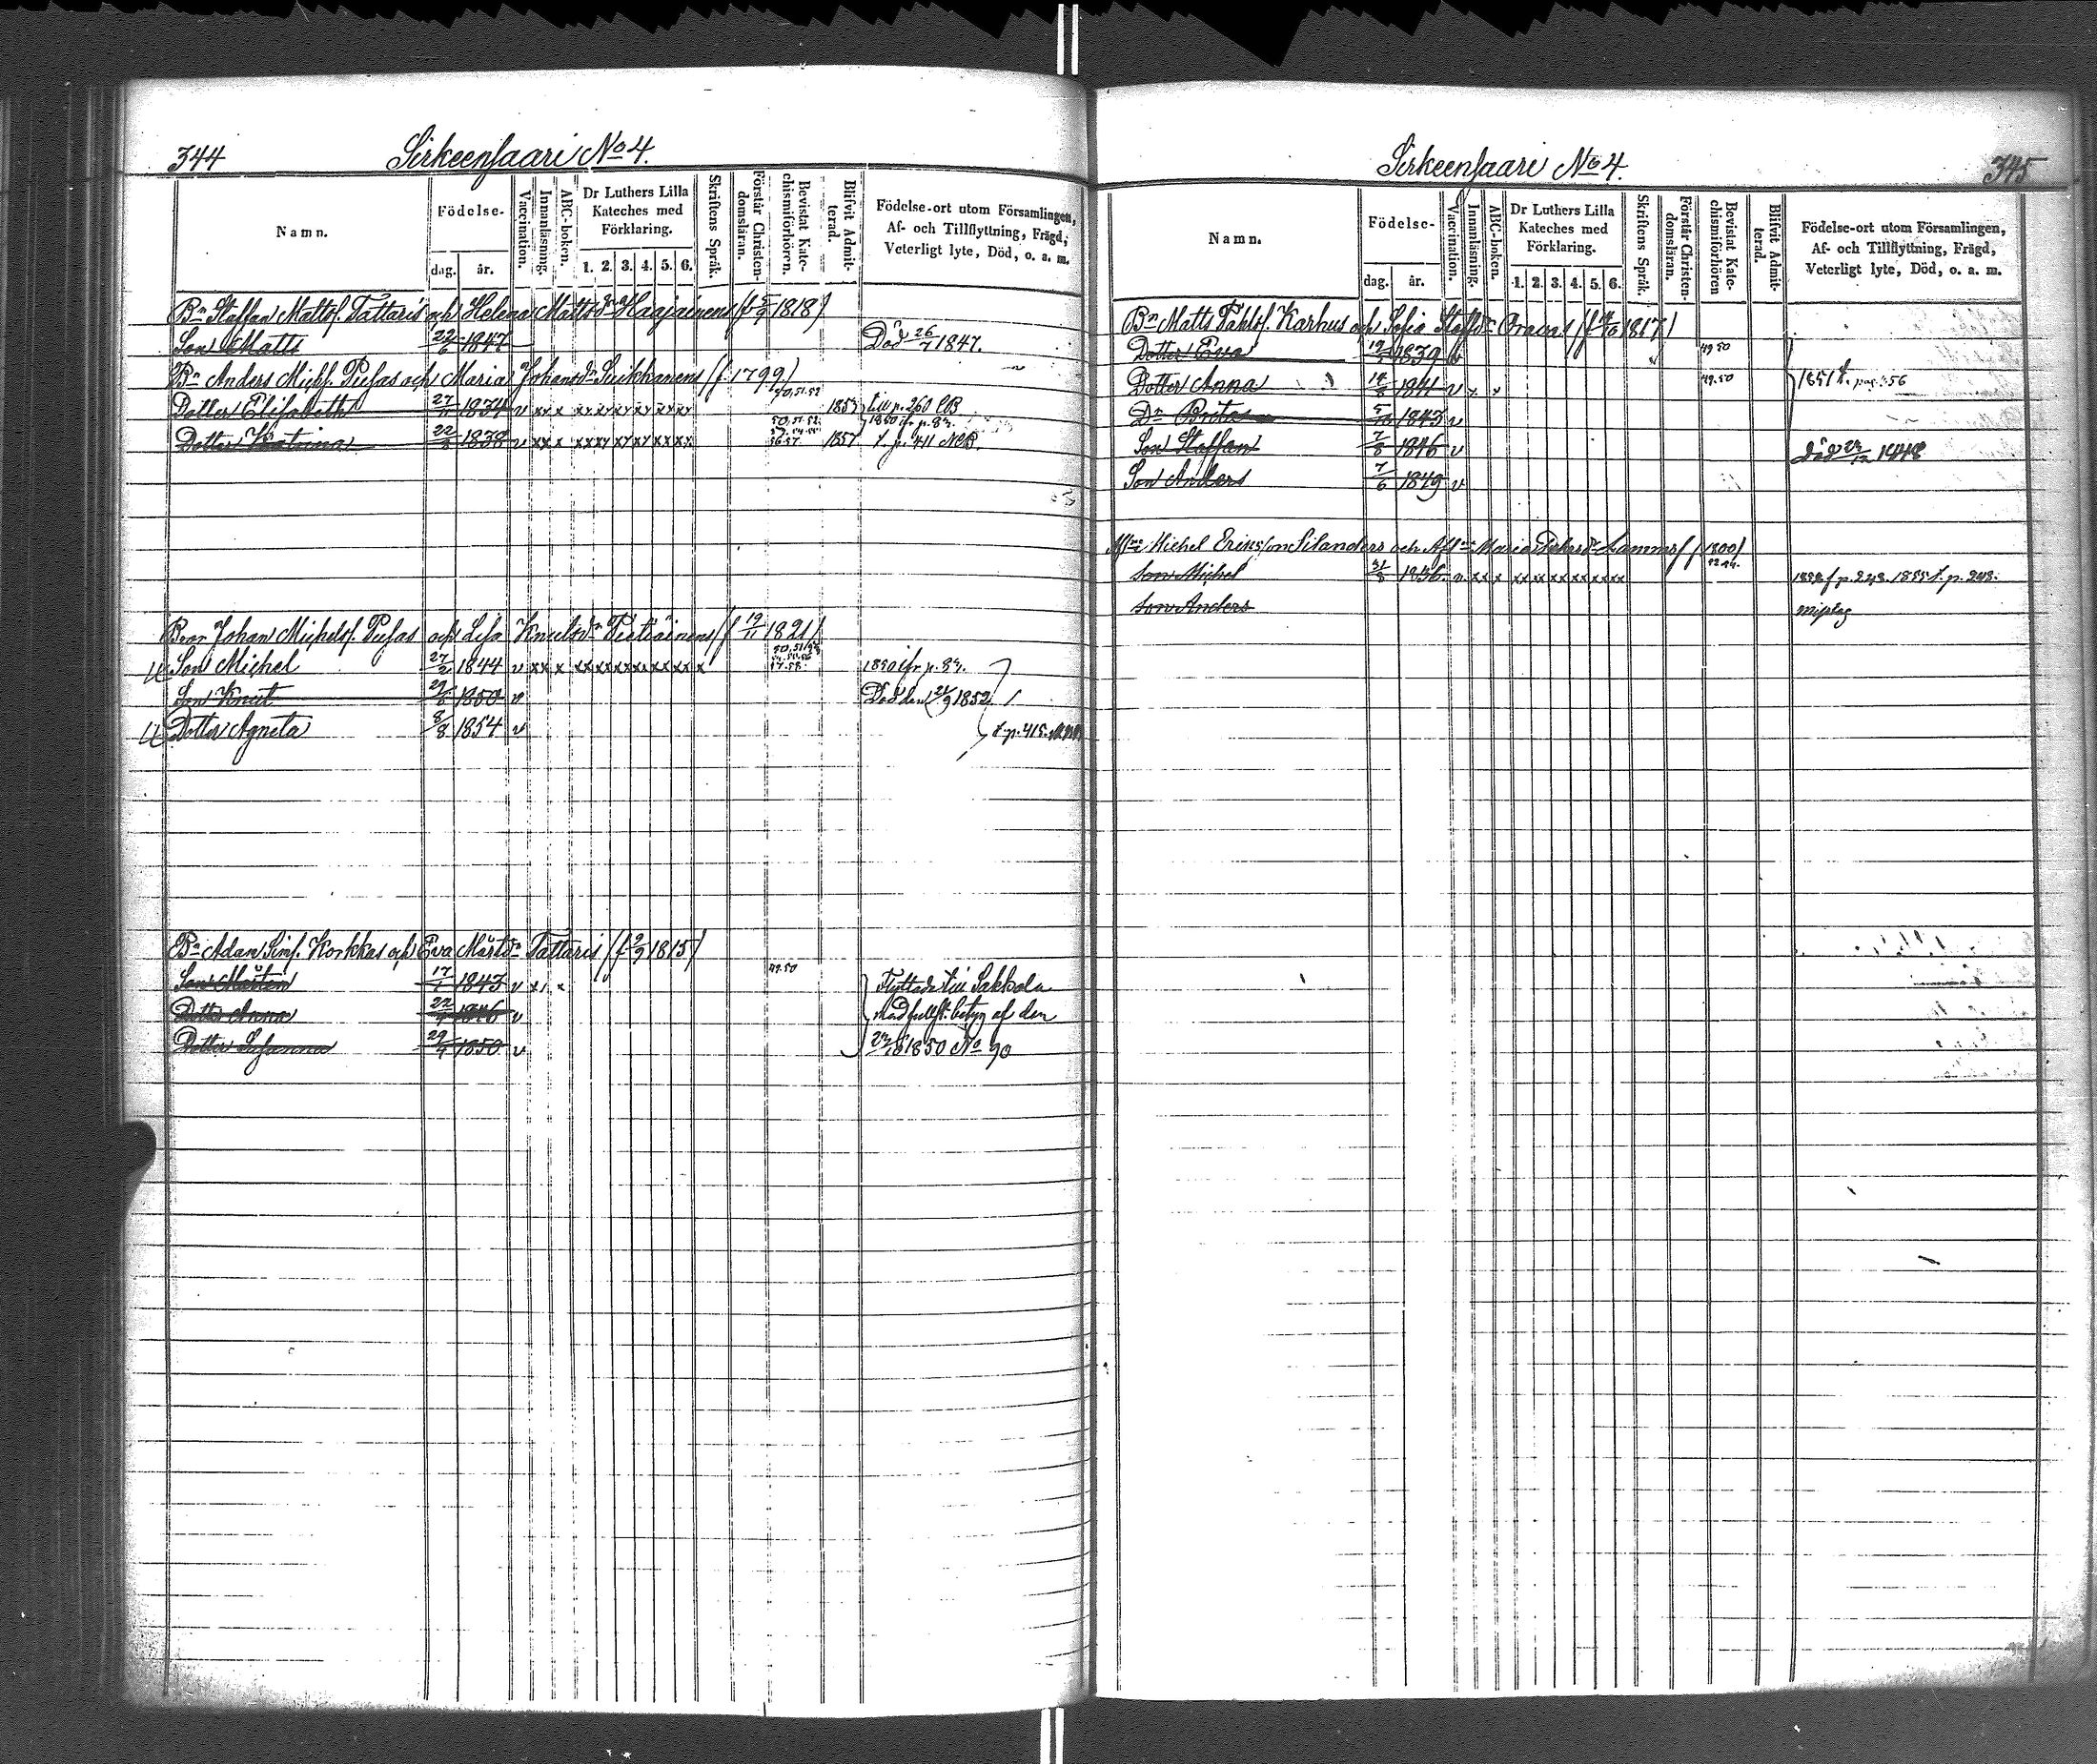 344 Sirkeensaari No 4.
Namn. Födelse- dag. år. Vaccination. Innanläsning. ABC-boken. Dr Luthers Lilla Kateches med Förklaring. 1. 2. 3. 4. 5. 6. Skriftens Språk. Förstår Christendomsläran. Bevistat Katechismiförhören. Blifvit Admitterad. Födelse-ort utom Församlingen, Af- och Tillflyttning, Frägd, Veterligt lyte, Död, o. a. m.
Bn Staffan Mattsf. Tattaris och Helena Mattsdr Haajainens (f 5/9 1818)
Son Matts 22/6 1847 Död 26/7 1847.
Bn Anders Michf. Pusas och Maria Johansdr Suikkanens (f. 1799)
Dotter Elisabeth 27/11 1834 v xx x xx xx xx xx xx xx 50,51.52 1853 till p. 260 CB
Dotter Katrina 22/8 1838 v xx x xx xx xx xx xx xx 50,51.52. 56.57. 1857 1850 ifr p. 83. t. p. 411 NCB.
Bror Johan Michelsf. Pusas och Lisa Knutsdr Pietiäinens (f 19/11 1821)
Son Michel 27/2 1844 v xx x xx xx xx xx xx xx x 57.58. 1850 ifr p. 83.
Son Knut 29/6 1850 v Död den 21/9 1852
Dotter Agneta 8/8 1854 v t. p. 415.
Bn Adam Simf. Korkkas och Eva Mårtsdr Tattaris (f 2/9 1815)
Son Mårten 17/1 1843 v x x 49.50 Flyttade till Sakkola
Dotter Anna 22/4 1846 v Med fullst. betyg af den
Dotter Susanna 29/4 1850 v 1850 No 90
Sirkeensaari No 4. 345
Namn. Födelse- dag. år. Vaccination. Innanläsning. ABC-boken. Dr Luthers Lilla Kateches med Förklaring. 1. 2. 3. 4. 5. 6. Skriftens Språk. Förstår Christendomsläran. Bevistat Katechismiförhören Blifvit Admitterad. Födelse-ort utom Församlingen, Af- och Tillflyttning, Frägd, Veterligt lyte, Död, o. a. m.
Bn Matts Karhus och Sofia Staffdr Oravas 1817)
Dotter Eva 1839 v 49 50
Dotter Anna 1841 v x x 49.50 1851 t. pag. 356
Dr Brita 1843 v
Son Staffan 7/8 1846 v död 1848
Son Anders 7/6 1849 v
Michel Eriksson Silanders och Maria Lammas (f 1800)
Son Michel 31/8 1836 v xx x xx xx xx xx xx xx p. 248. 1855 t. p. 248.
Son Anders